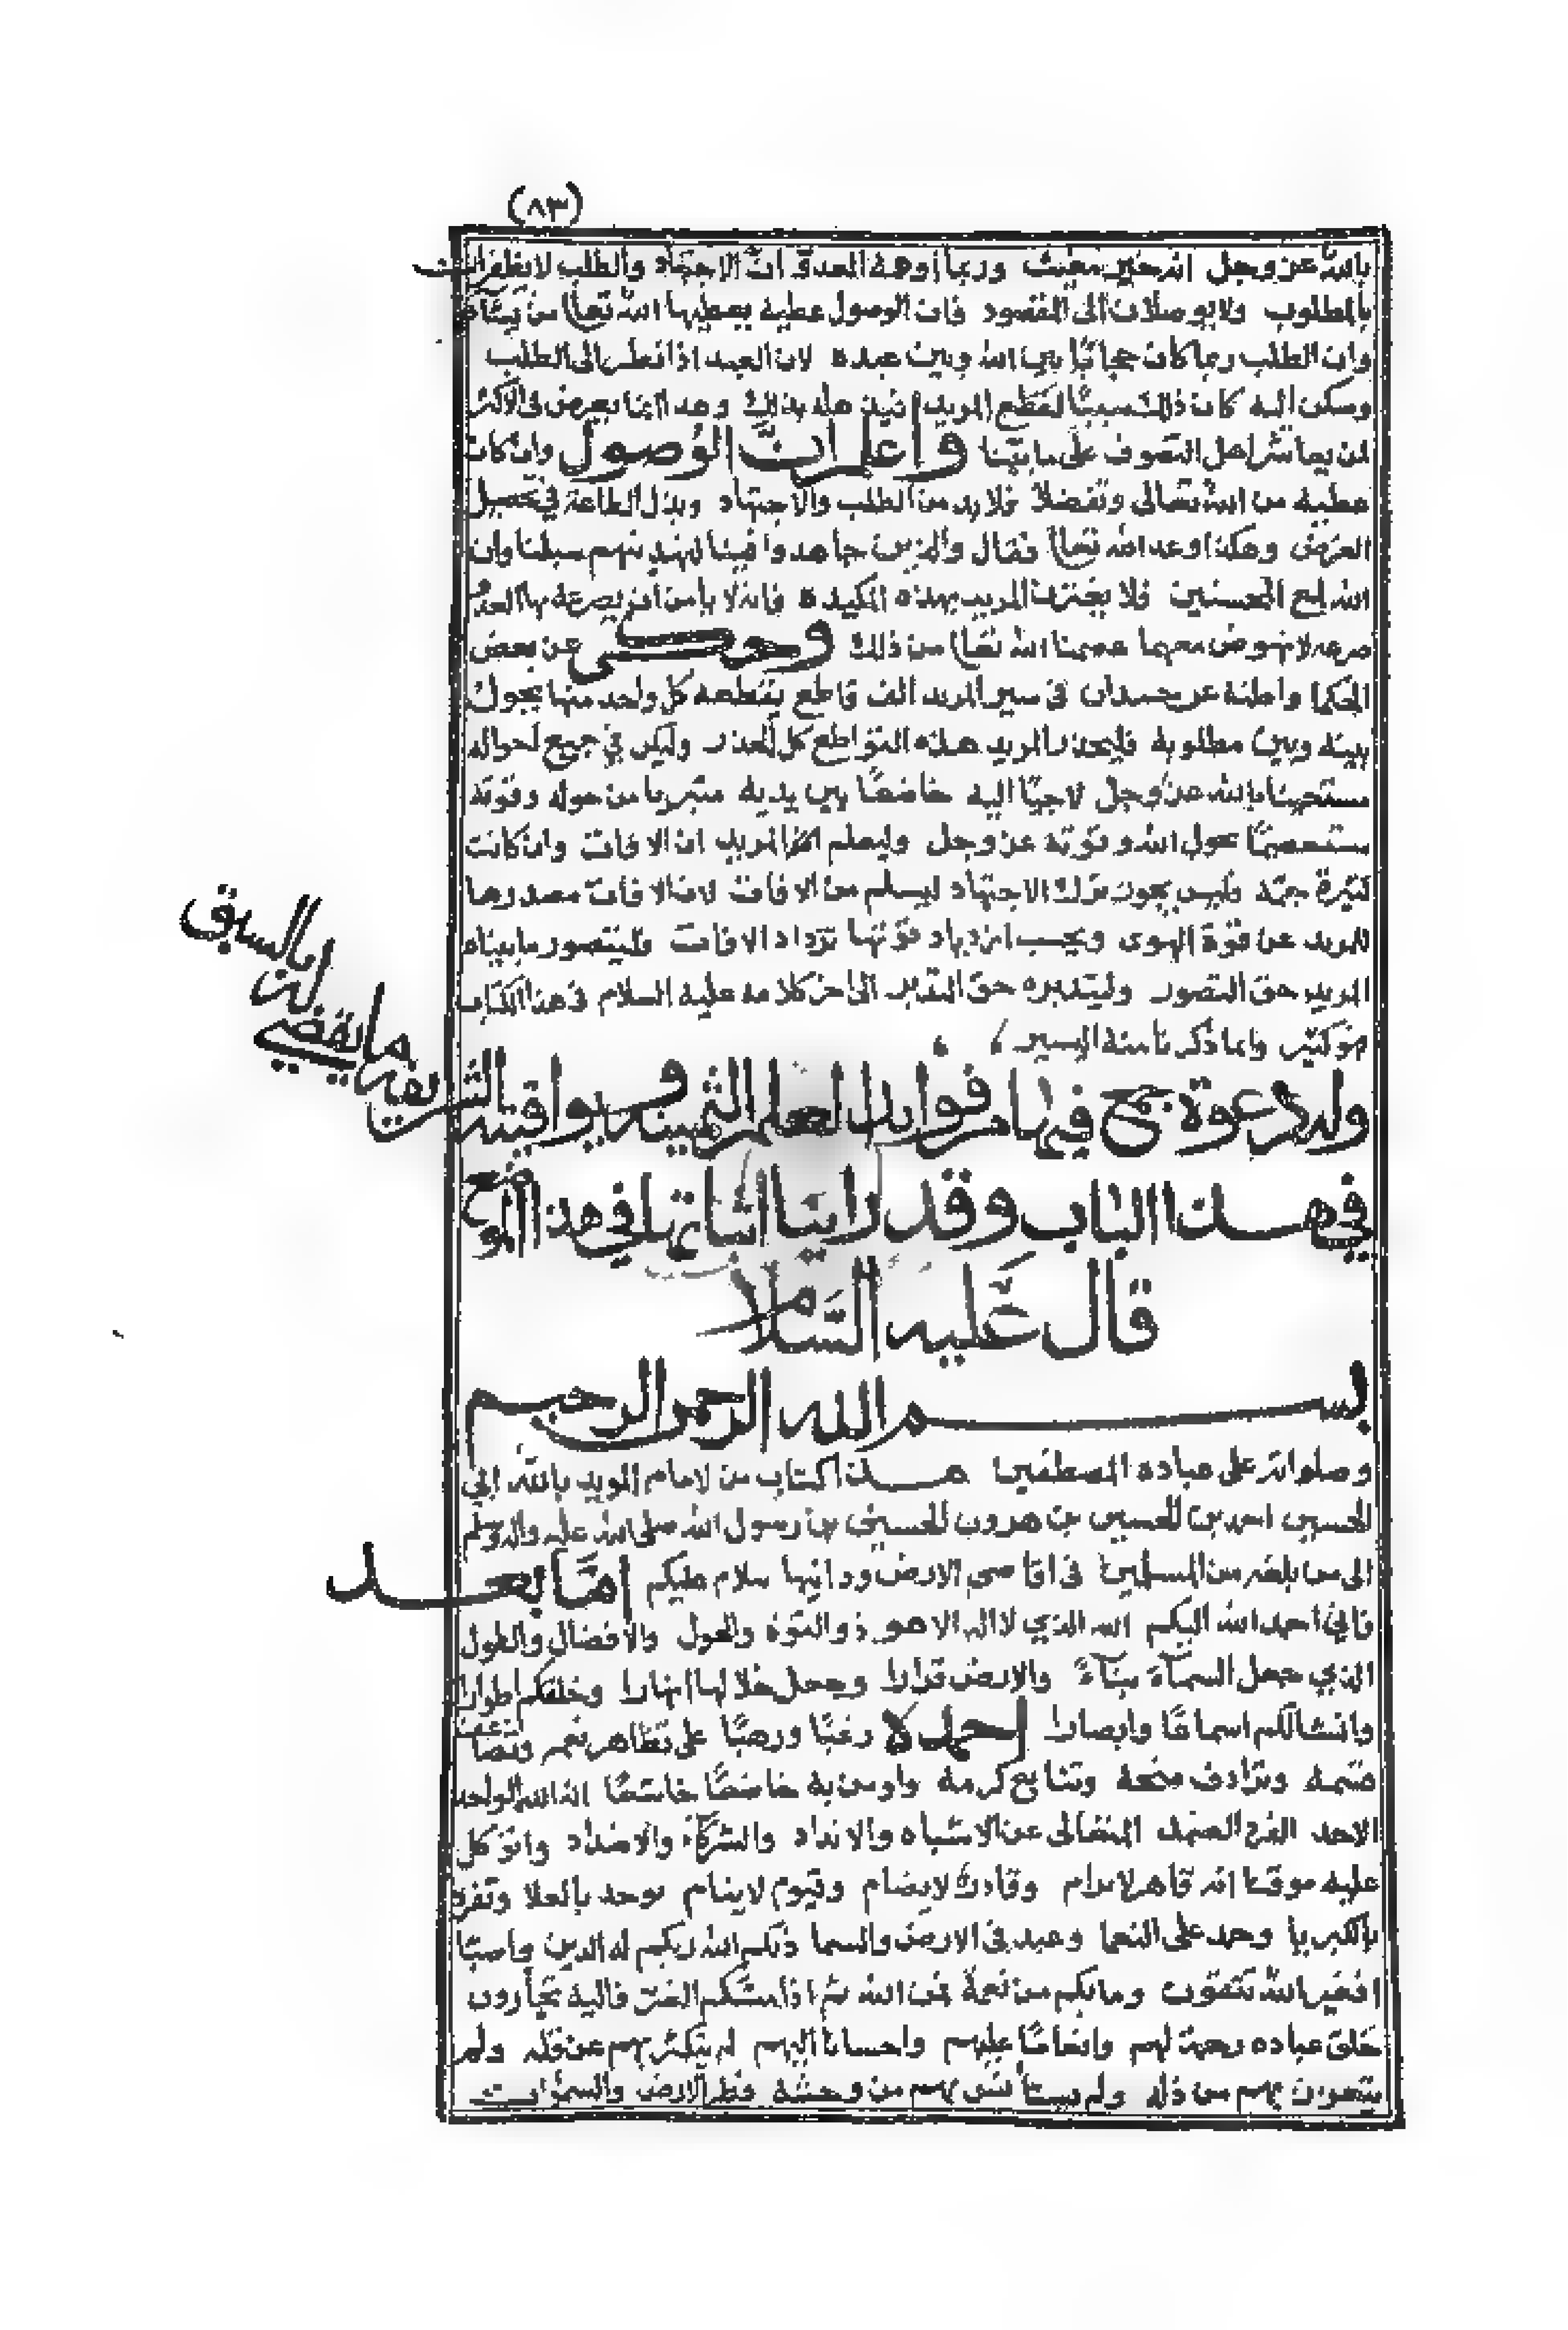 (٨٣)
بالله عز وجل انه خير مغيث وربما اوهمه العدو ان الاجتهاد والطلب لا يظفران
بالمطلوب ولا يوصلان الى المقصود فان الوصول عطية يعطيها الله تعالى من يشاء
وان الطلب ربما كان حجابا بين الله وبين عبده لان العبد اذا نظر الى الطلب
وسكن اليه كان ذلك سببا لقطع المريد وهذا انما يعرض في الاكثر
لمن يعاشر اهل التصوف على ما بينا واعلم ان الوصول وان كان
عطية من الله تعالى وتفضلا فلا بد من الطلب والاجتهاد وبذل الطاعة في تحصيل
الغرض وهكذا وعد الله تعالى فقال والذين جاهدوا فينا لنهدينهم سبلنا وان
الله لمع المحسنين فلا يغترن المريد بهذه المكيدة فانه لا يامن ان يصرعه بها العدو
صرعه لا نهوض معها عصمنا الله تعالى من ذلك وحكى عن بعض
الحكما واظنه عن حمدان في سير المريد الف قاطع يقطعه كل واحد منها يحول
بينه وبين مطلوبه فليحذر المريد هذه القواطع كل الحذر وليكن في جميع احواله
مستعينا بالله عز وجل لاجيا اليه خاضعا بين يديه متبريا من حوله وقوته
مستعصما بحول الله وقوته عز وجل وليعلم المريد ان الافات وان كانت
كثيرة جمة فليس يجوز ترك الاجتهاد ليسلم من الافات لان الافات مصدرها
للمريد عن قوة الهوى وبحسب ازدياد قوتها تزداد الافات فليتصور ما بيناه
المريد حق التصور وليتدبره حق التدبر الى اخر كلامه عليه السلام في هذا الكتاب
هو كثير وانما ذكرنا منه اليسير
وله دعوة جمع فيها من فوايد العلم الثمينه ويواقيته الشريفه ما يقضي له بالسبق
في هذا الباب وقد راينا اثباتها في هذا الموضع
قال عليه السلام
بسم الله الرحمن الرحيم
وصلواته على عباده المصطفين هذا كتاب من الامام المويد بالله ابي
الحسين احمد بن الحسين بن هرون الحسيني بن رسول الله صلى الله عليه واله وسلم
الى من بلغه من المسلمين في اقاصي الارض ودانيها سلام عليكم اما بعد
فاني احمد الله اليكم الله الذي لا اله الا هو ذو القوة والحول والافضال والطول
الذي جعل السمآء بنآء والارض قرارا وجعل خلالها انهارا وخلقكم اطوارا
وانشا لكم اسماعا وابصارا احمده رغبا ورهبا على تظاهر نعمه وتضاعف
قسمه وترادف منحه وتتابع كرمه واومن به خاضعا خاشعا انه الله الواحد
الاحد الفرد الصمد المتعالى عن الاشباه والانداد والشركآء والاضداد واتوكل
عليه موقنا انه قاهر لا يرام وقادر لا يضام وقيوم لا ينام توحد بالعلا وتفرد
بالكبريا وحمد على النعما وعبد في الارض والسما ذلكم الله ربكم له الدين واصبا
افغير الله تتقون وما بكم من نعمة فمن الله ثم اذا مسكم الضر فاليه تجأرون
خلق عباده رحمة لهم وانعاما عليهم واحسانا اليهم لم يتكثر بهم عن قله ولم
يتعزز بهم من ذله ولم يستأنس بهم من وحشة فطر الارض والسموات